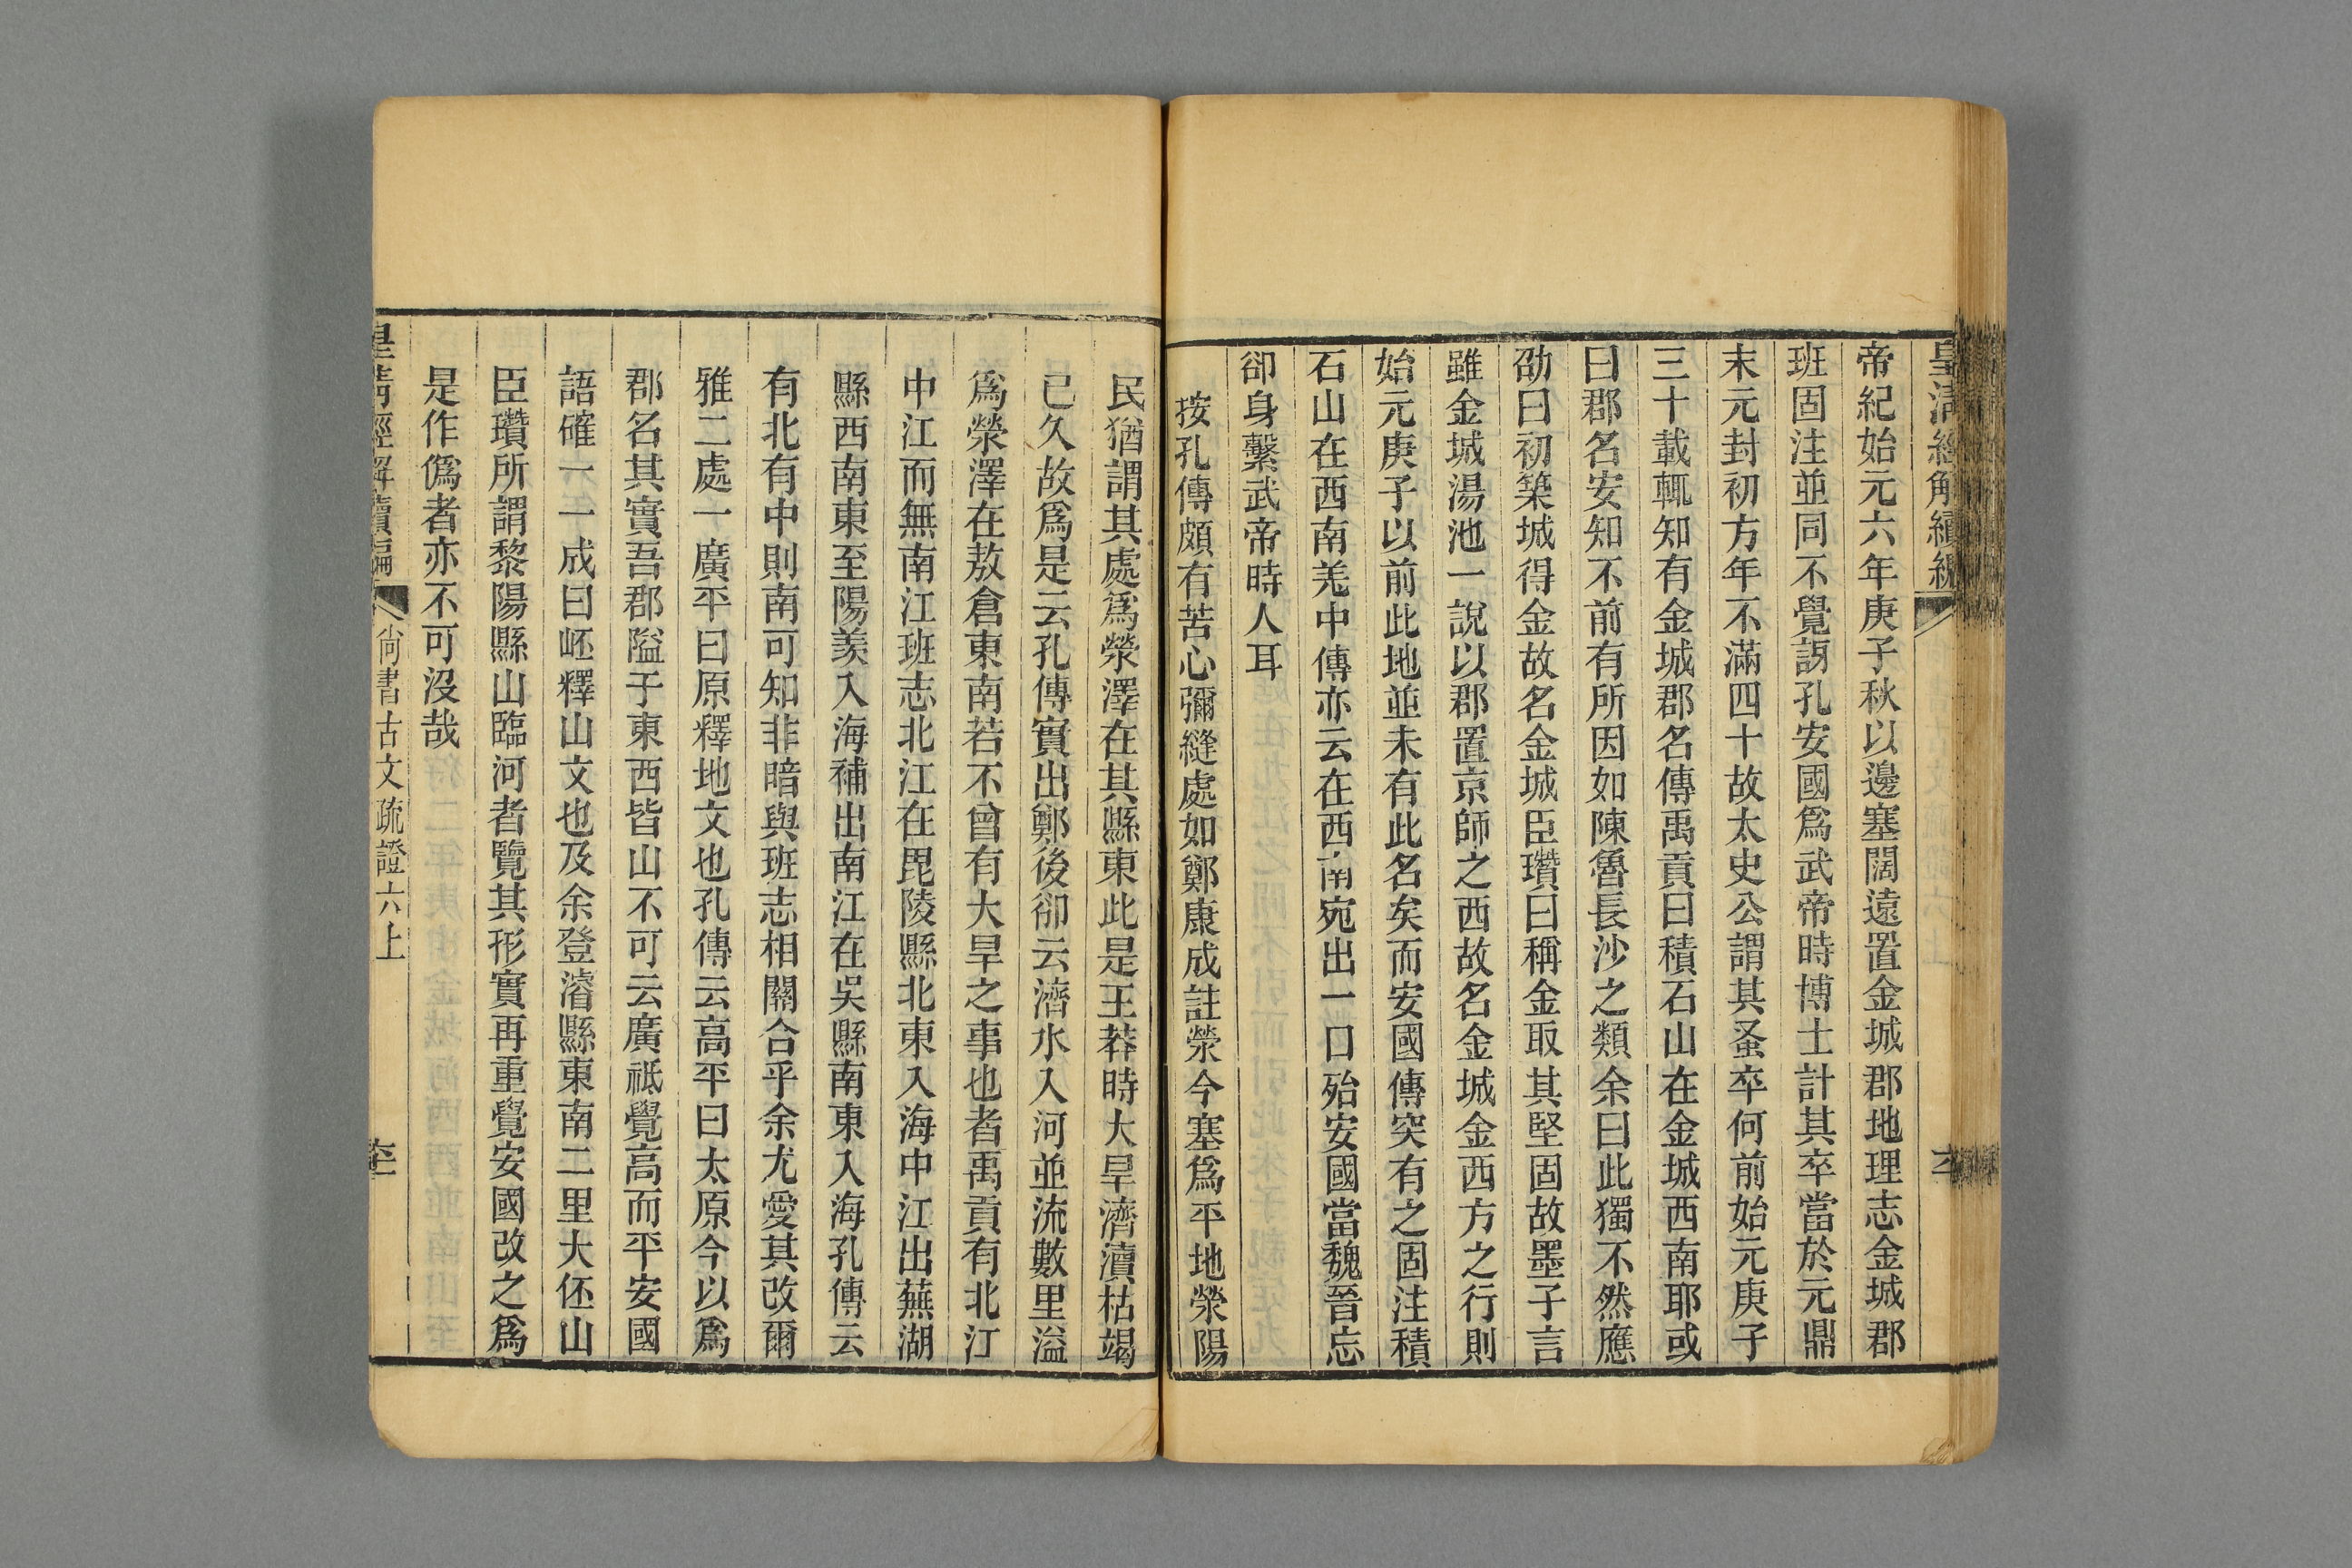 皇清經解續編
帝紀始元六年庚子秋以邊塞闊遠置金城郡地理志金城郡
班固注並同不覺訝孔安國爲武帝時博士計其卒當於元鼎
末元封初方年不滿四十故太史公謂其蚤卒何前始元庚子
三十載輒知有金城郡名傳禹貢曰積石山在金城西南耶或
曰郡名安知不前有所因如陳魯長沙之類余曰此獨不然應
劭曰初築城得金故名金城臣瓚曰稱金取其堅固故墨子言
雖金城湯池一說以郡置京師之西故名金城金西方之行則
始元庚子以前此地並未有此名矣而安國傳突有之固注積
石山在西南羌中傳亦云在西南宛出一口殆安國當魏晉忘
卻身繫武帝時人耳
按孔傳頗有苦心彌縫處如鄭康成註滎今塞爲平地滎陽
民猶謂其處爲滎澤在其縣東此是王莽時大旱濟瀆枯竭
已久故爲是云孔傳實出鄭後卻云濟水入河並流數里溢
爲滎澤在敖倉東南若不曾有大旱之事也者禹貢有北江
中江而無南江班志北江在毘陵縣北東入海中江出蕪湖
縣西南東至陽羨入海補出南江在吳縣南東入海孔傳云
有北有中則南可知非暗與班志相關合乎余尤愛其改爾
雅二處一廣平曰原釋地文也孔傳云高平曰太原今以爲
郡名其實吾郡隘于東西皆山不可云廣祗覺高而平安國
語確一一成曰岯釋山文也及余登濬縣東南二里大伾山
臣瓚所謂黎陽縣山臨河者覽其形實再重覺安國改之爲
是作僞者亦不可沒哉
皇淸經解續編 尙書古文疏證六上